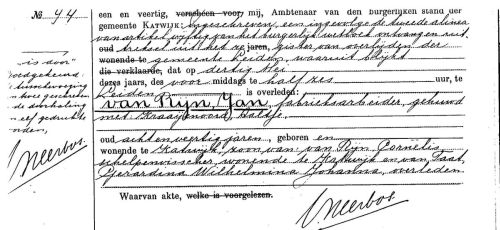 No. 44
een en veertig, verscheen voor mij, Ambtenaar van den burgerlijken stand der
gemeente KATWIJK, ingeschreven, een ingevolge de tweede alinea
van artikel vijftig van het burgerlijk wetboek ontvangen uit
treksel uit het register van overlijden der
wonende te gemeente Leiden, waaruit blijkt
die verklaarde, dat op dertig Mei
dezes jaars, des voor middags te half zes uur, te
Leiden is overleden:
van Rijn, Jan, fabrieksarbeider, gehuwd
met Kraaijenoord, Aaltje,
oud acht en veertig jaren, geboren en
wonende te Katwijk, zoon van van Rijn, Cornelis,
schelpenvisscher, wonende te Katwijk en van Taat,
Gerardina Wilhelmina Johanna, overleden
Waarvan akte, welke is voorgelezen.
"is door"
goedgekeurd
de doorhaling
gedrukte
den,